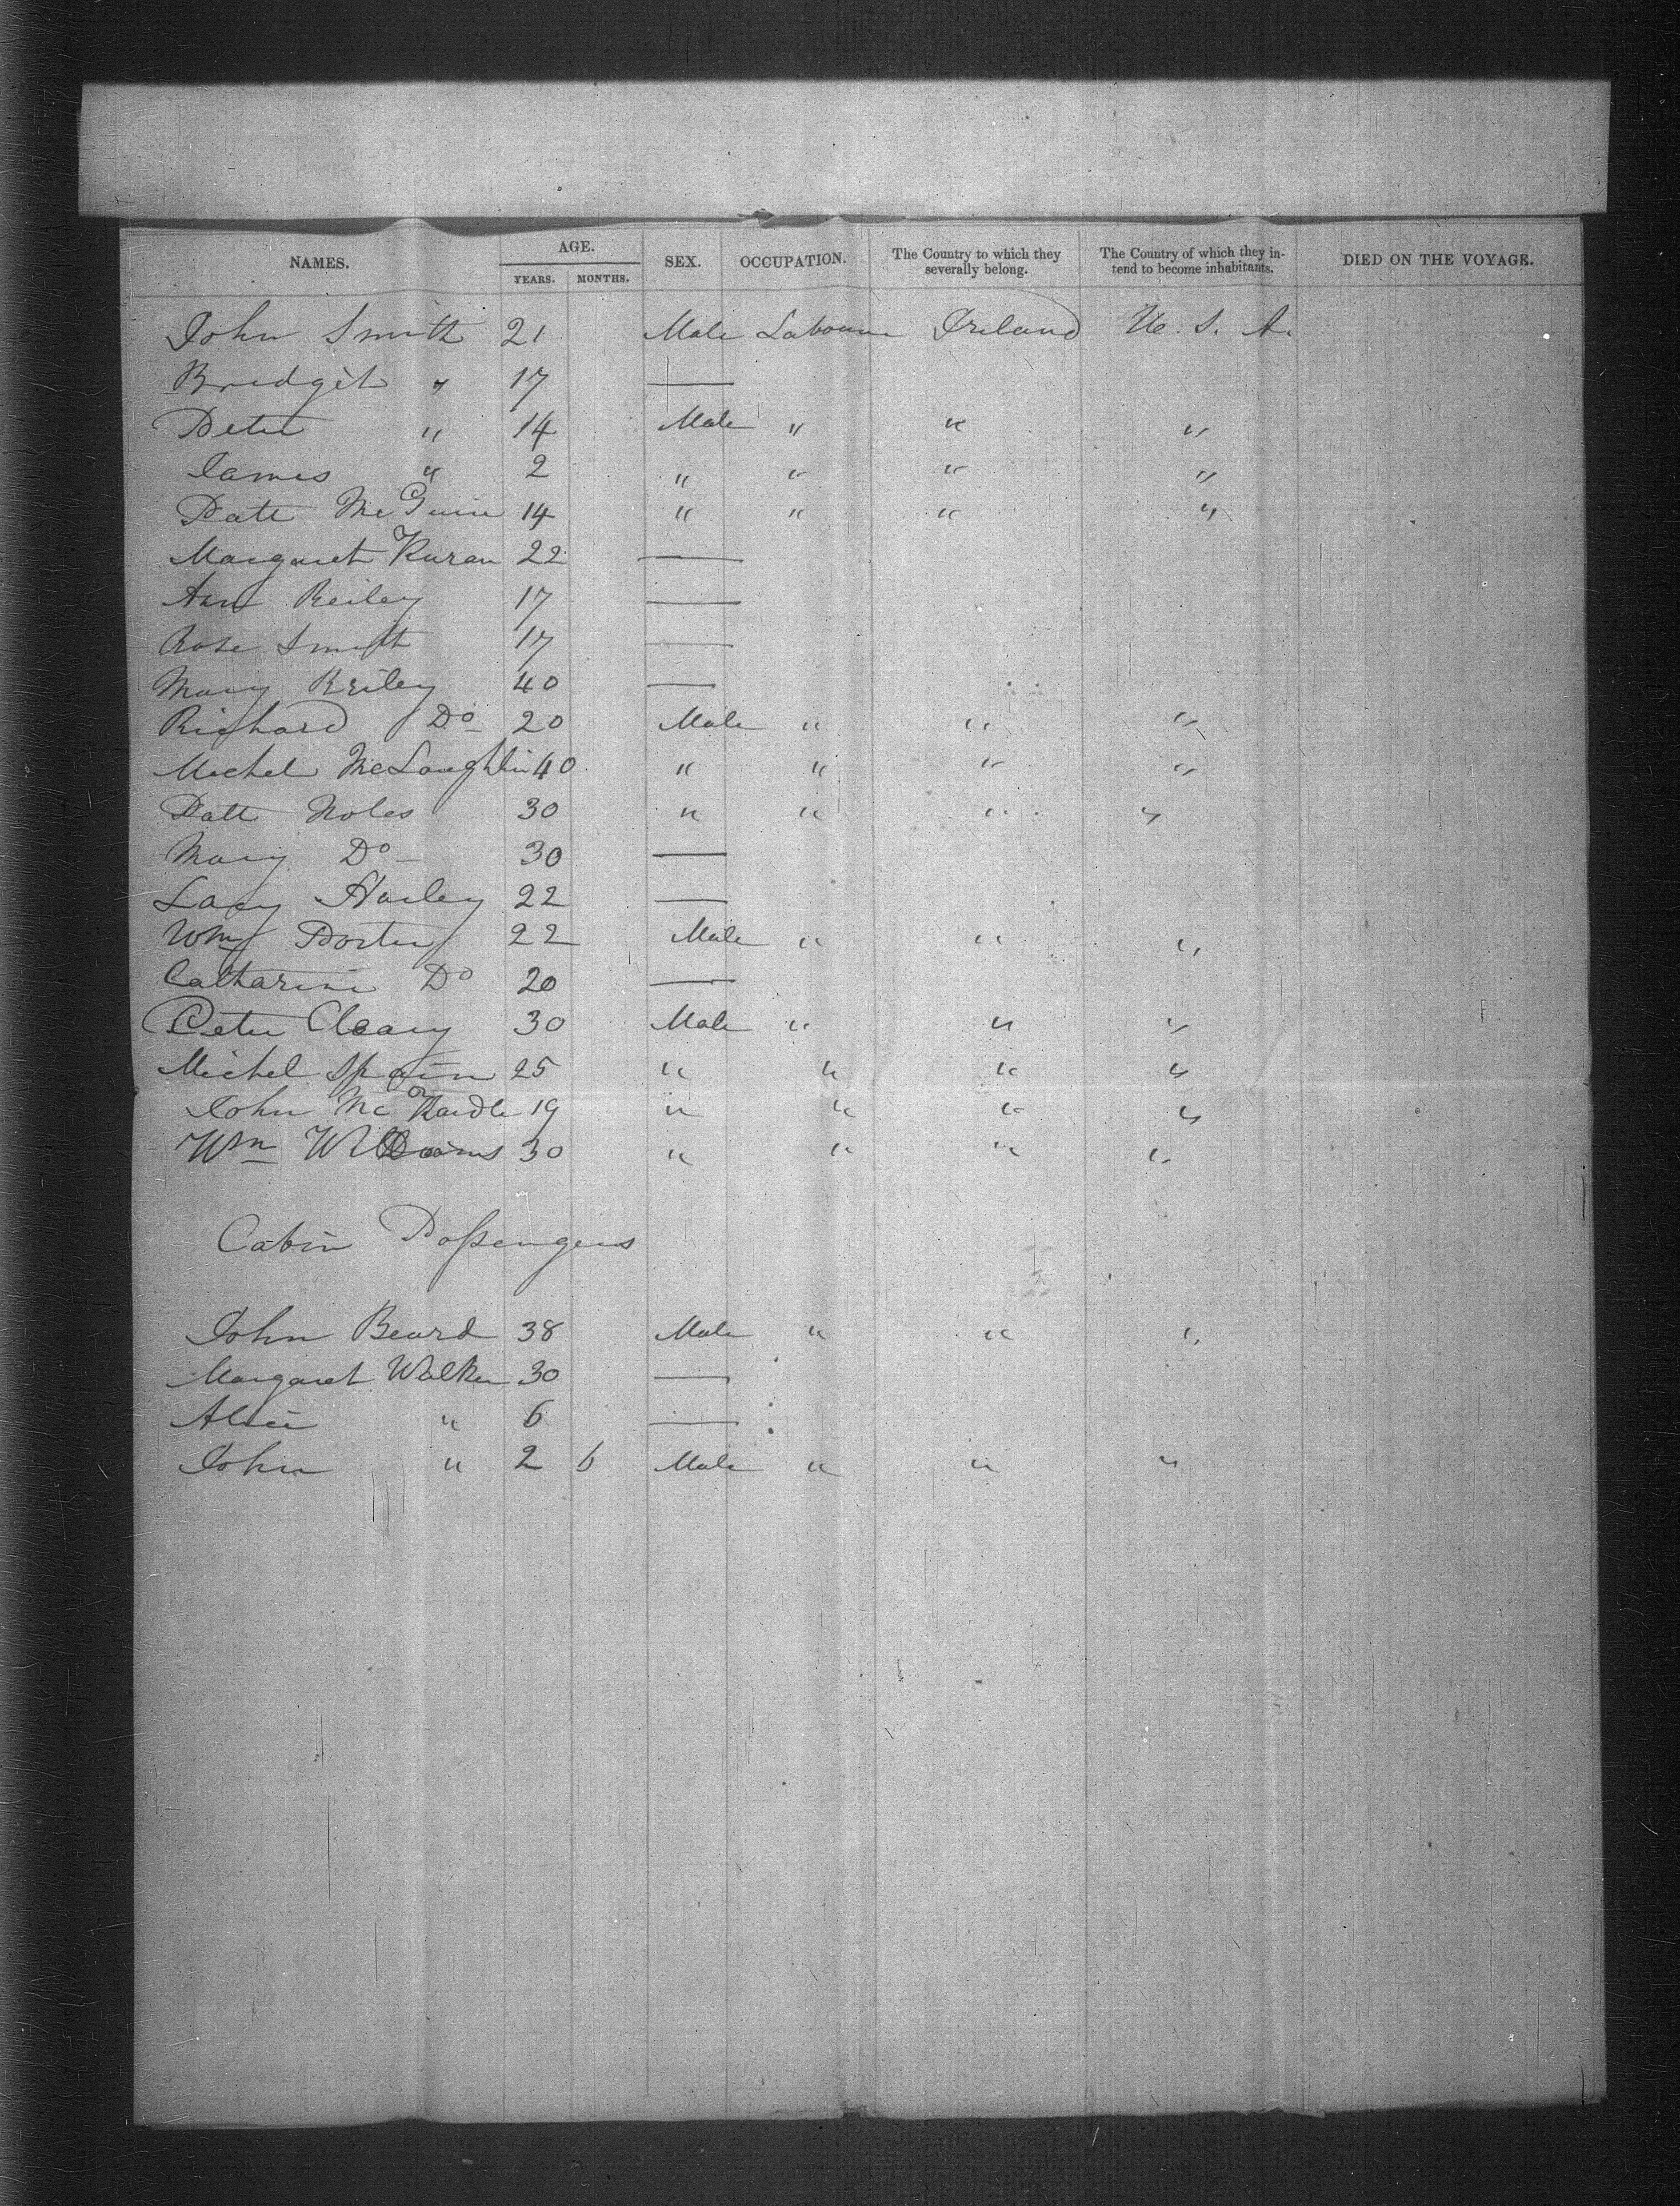 NAMES. AGE. YEARS. MONTHS. SEX. OCCUPATION. The Country to which they severally belong. The Country of which they intend to become inhabitants. DIED ON THE VOYAGE.
John Smith 21 Male Labourer Ireland U. S. A.
Bridget " 17 —
Peter " 14 Male " " "
James " 2 " " " "
Patt McGuire 14 " " " "
Margaret 22 —
Ann Reiley 17 —
Rose Smith 17 —
Mary Reiley 40 —
Richard Do 20 Male " " "
Michel McLaughlin 40 " " " "
Patt Noles 30 " " " "
Mary Do 30 —
Harley 22 —
Wm Porter 22 Male " " "
Catharine Do 20 —
Peter Cleary 30 Male " " "
Michel Spain 25 " " " "
John Mc 19 " " " "
Wm Williams 30 " " " "
Cabin Passengers
John Beard 38 Male " " "
Margaret Walker 30 —
Alice " 6 —
John " 2 6 Male " " "